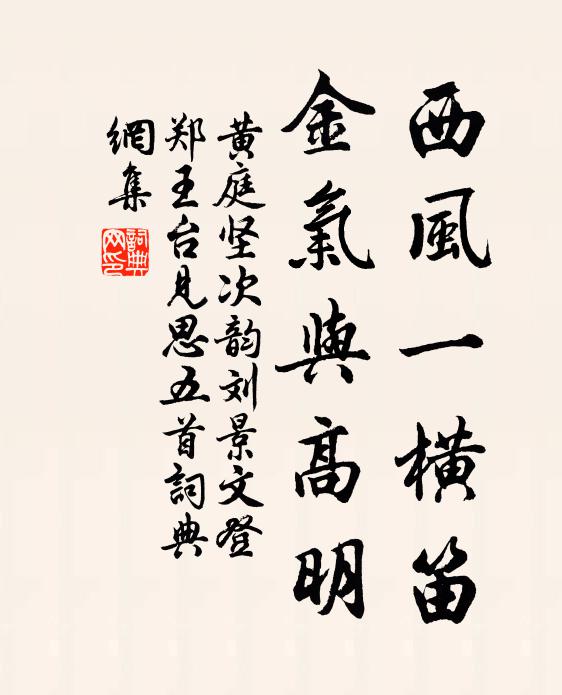 西風一橫笛
金氣與高明
黄庭坚次韵刘景文登
郑王台見思五首詞典
網集
詞典
网印